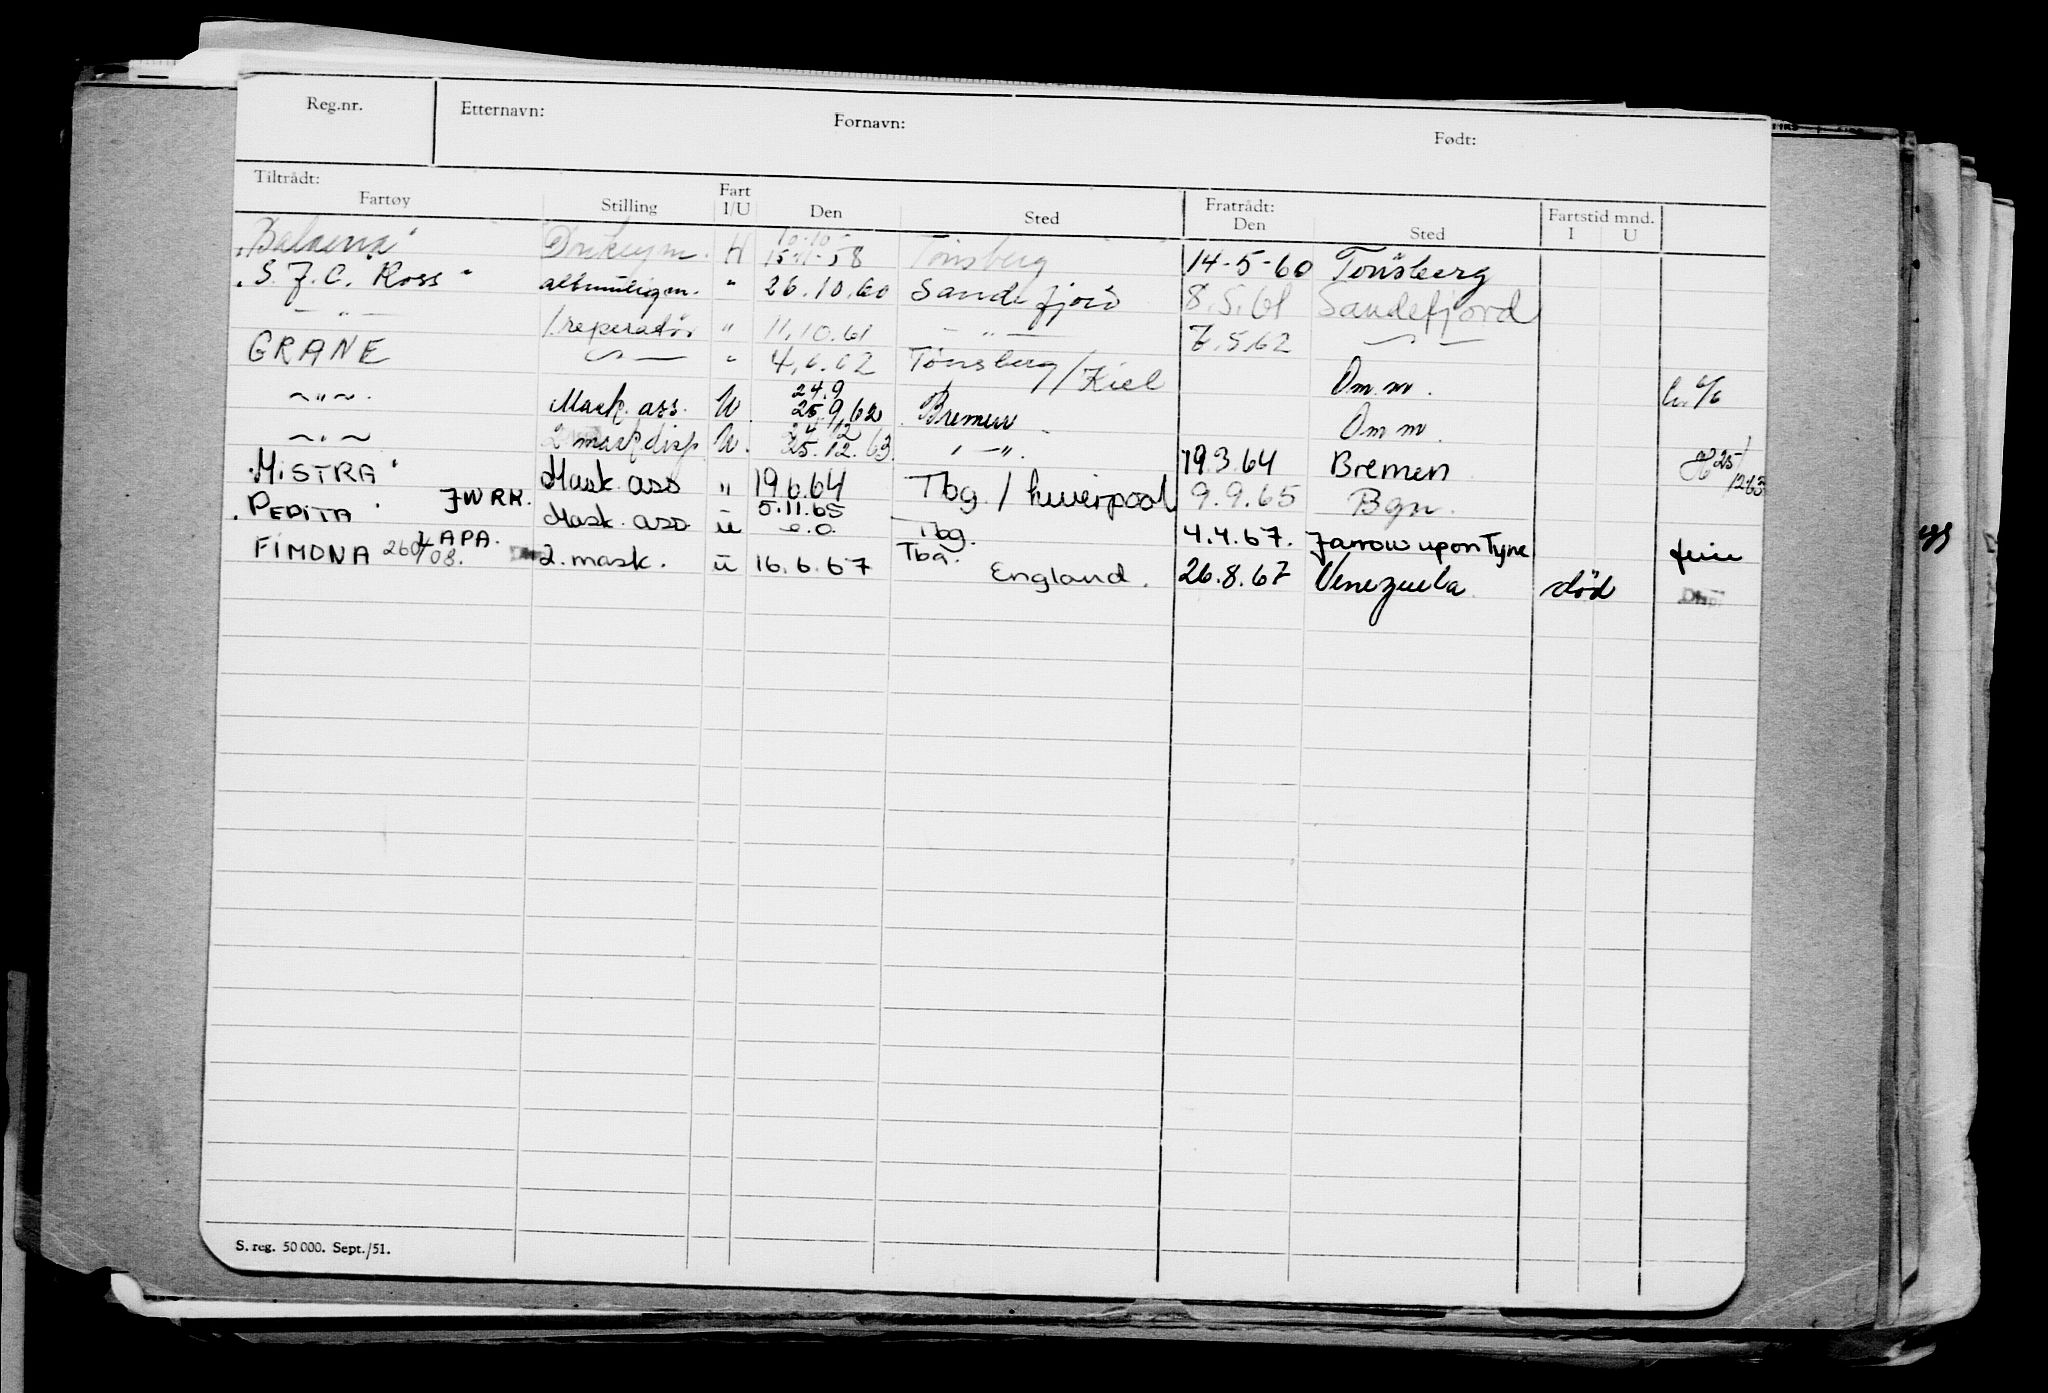 Reg.nr. Etternavn: Fornavn: Født:
Tiltrådt: Fratrådt: Fartstid mnd.
Fartøy Stilling Fart I/U Den Sted Den Sted I U
"Balaena" H 10-10- 15-11-58 Tønsberg 14-5-60 Tønsberg
"S. J. C. Ross" " 26.10.60 Sandefjord 8.5.61 Sandefjord
— " — 1 reperatør " 11.10.61 — " — 7.5.62 — " —
GRANE — " — " 4.6.62 Tønsberg/Kiel Om.m.
~ " ~ Mask. ass. U 24.9 25.9.62 Bremen Om m.
~ " ~ 2 mask disp U. 24.12 25.12.63. " — ". 19.3.64 Bremen 25/1263
"MISTRA" Mask. ass " 19.6.64 Tbg. / Liverpool 9.9.65 Bgn.
"PEDITA" JWRK. Mask. ass ü 5.11.65 e.o. Tbg. 4.4.67. Jarrow upon Tyne ferie
FIMONA LAPA. 260/08. 2. mask. ü 16.6.67 Tbg. England. 26.8.67 Venezuela død Disp
S. reg. 50 000. Sept./51.